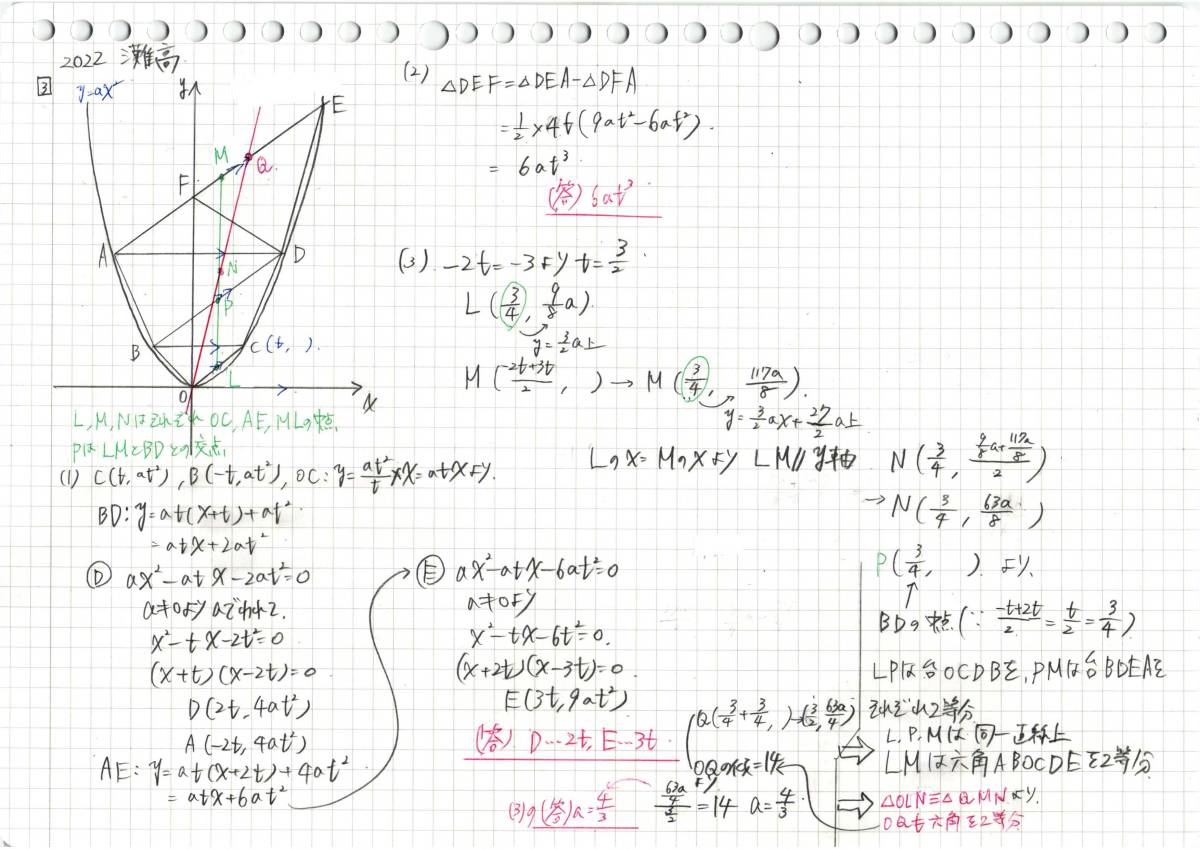 2022 灘高
3
y=ax²
y
E
M
Q
F
A
D
N
P
B
C(t, ).
L
O
x
L,M,NはそれぞれOC,AE,MLの中点
PはLMとBDとの交点
(1) C(t,at²), B(-t,at²), OC: y=at²/t×x=atxより.
BD: y=at(x+t)+at²
=atx+2at²
Ⓓ ax²-atx-2at²=0
a≠0よりaでわって.
x²-tx-2t²=0
(x+t)(x-2t)=0
D(2t,4at²)
A(-2t,4at²)
AE: y=at(x+2t)+4at²
=atx+6at²
Ⓔ ax²-atx-6at²=0
a≠0より
x²-tx-6t²=0.
(x+2t)(x-3t)=0
E(3t,9at²)
(答) D…2t, E…3t
(2) △DEF=△DEA-△DFA
=1/2×4t(9at²-6at²).
=6at³
(答) 6at³
(3). -2t=-3より t=3/2
L(3/4, 9/8a).
y=3/2a上
M((-2t+3t)/2, )→M(3/4, 117a/8).
y=3/2ax+27/2a上
Lのx=Mのxより LM∥y軸
N(3/4, (9/8a+117a/8)/2)
→N(3/4, 63a/8)
P(3/4, ). より,
BDの中点(∵ (-t+2t)/2=t/2=3/4)
LPは台OCDBを,PMは台BDEAを
それぞれ2等分
L,P,Mは同一直線上
⇒ LMは六角ABOCDEを2等分
⇒ △OLN≡△QMNより.
OQも六角を2等分
Q(3/4+3/4, )→(3/2, 63a/4)
OQの傾=14より
(63a/4)/(3/2)=14 a=4/3
(3)の(答)a=4/3